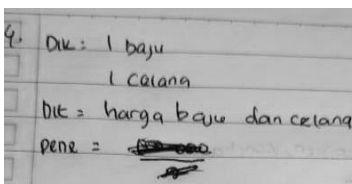 4. Dik : 1 baju
1 celana
Dit = harga baju dan celana
pene =